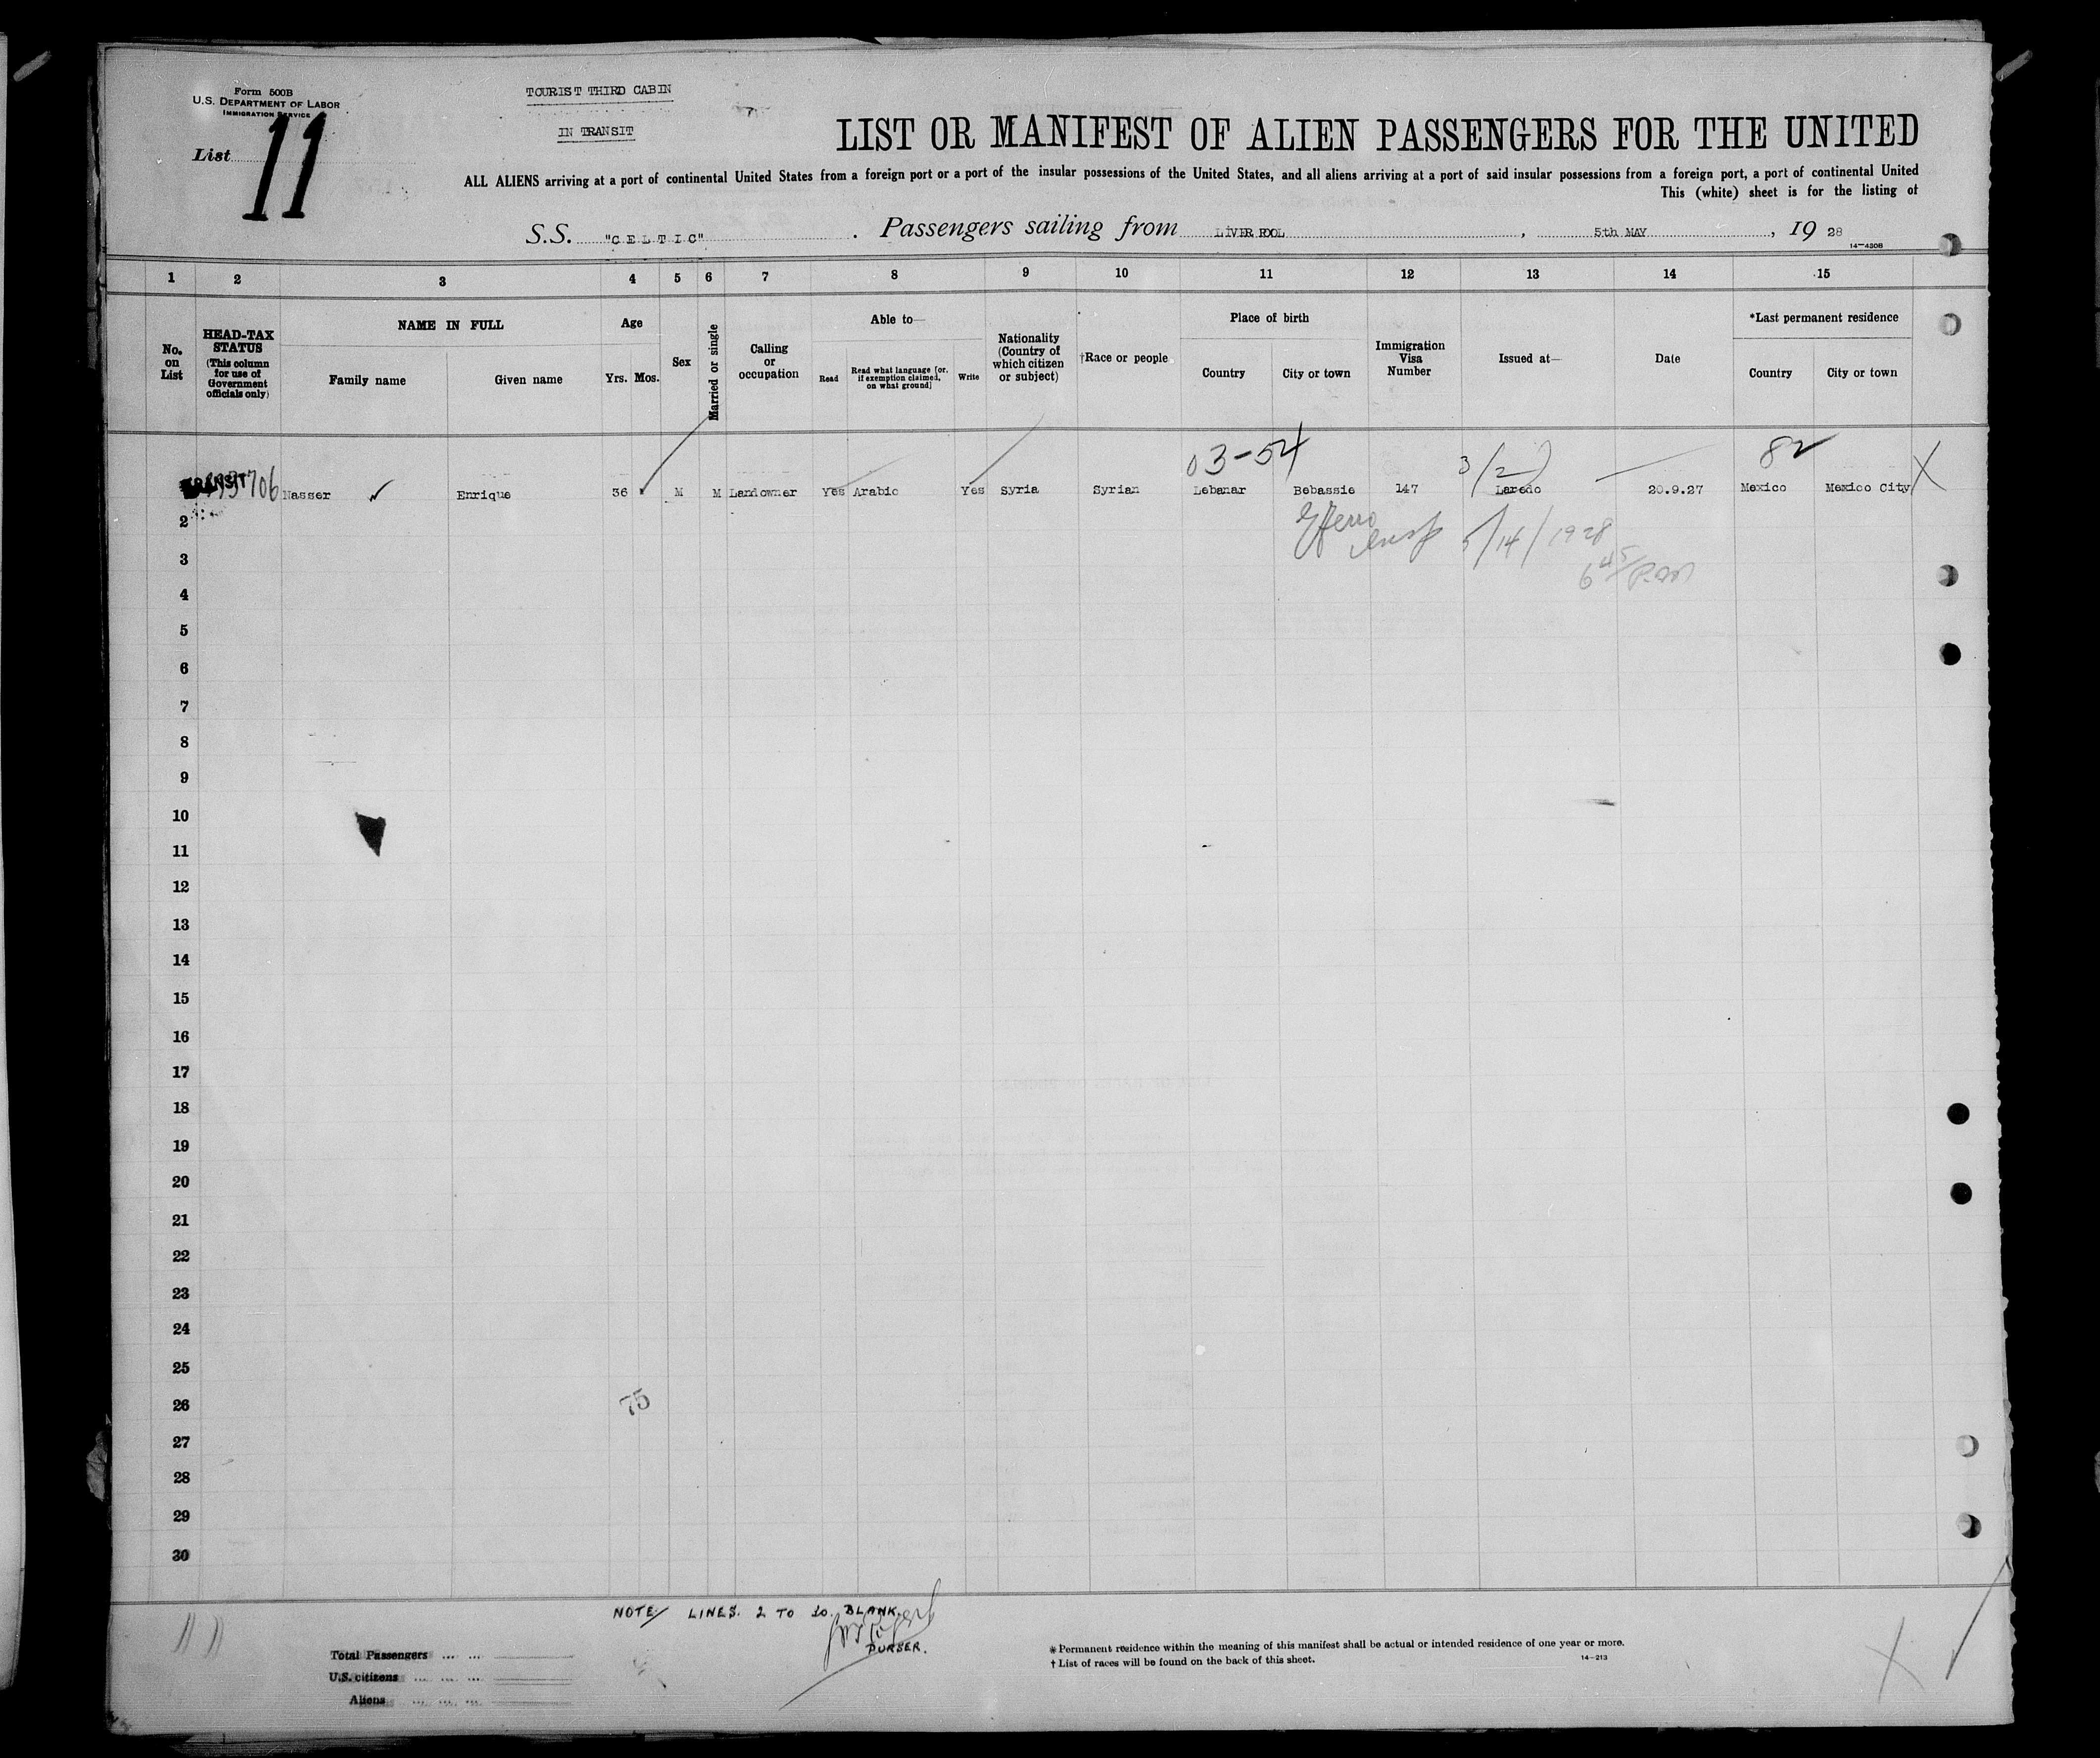 Form 500B
U.S. DEPARTMENT OF LABOR
IMMIGRATION SERVICE
List 11
TOURIST THIRD CABIN
IN TRANSIT
LIST OR MANIFEST OF ALIEN PASSENGERS FOR THE UNITED
ALL ALIENS arriving at a port of continental United States from a foreign port or a port of the insular possessions of the United States, and all aliens arriving at a port of said insular possessions from a foreign port, a port of continental United
This (white) sheet is for the listing of
S.S. "CELTIC" . Passengers sailing from LIVERPOOL , 5th MAY , 19 28
14—430B
1 2 3 4 5 6 7 8 9 10 11 12 13 14 15
No. on List
HEAD-TAX STATUS (This column for use of Government officials only)
NAME IN FULL
Family name Given name
Age
Yrs. Mos.
Sex
Married or single
Calling or occupation
Able to—
Read Read what language [or, if exemption claimed, on what ground] Write
Nationality (Country of which citizen or subject)
†Race or people
Place of birth
Country City or town
Immigration Visa Number
Issued at—
Date
*Last permanent residence
Country City or town
03-54 82
TRANSIT 706 Nasser Enrique 36 M M Landowner Yes Arabic Yes Syria Syrian Lebanar Bebassie 147 Laredo 20.9.27 Mexico Mexico City X
5/14/1928
6 45 P.M
2
3
4
5
6
7
8
9
10
11
12
13
14
15
16
17
18
19
20
21
22
23
24
25
26
27
28
29
30
75
NOTE/ LINES. 2 TO 30. BLANK.
PURSER.
11
Total Passengers
U.S. citizens
Aliens
* Permanent residence within the meaning of this manifest shall be actual or intended residence of one year or more.
† List of races will be found on the back of this sheet.
14—213
X